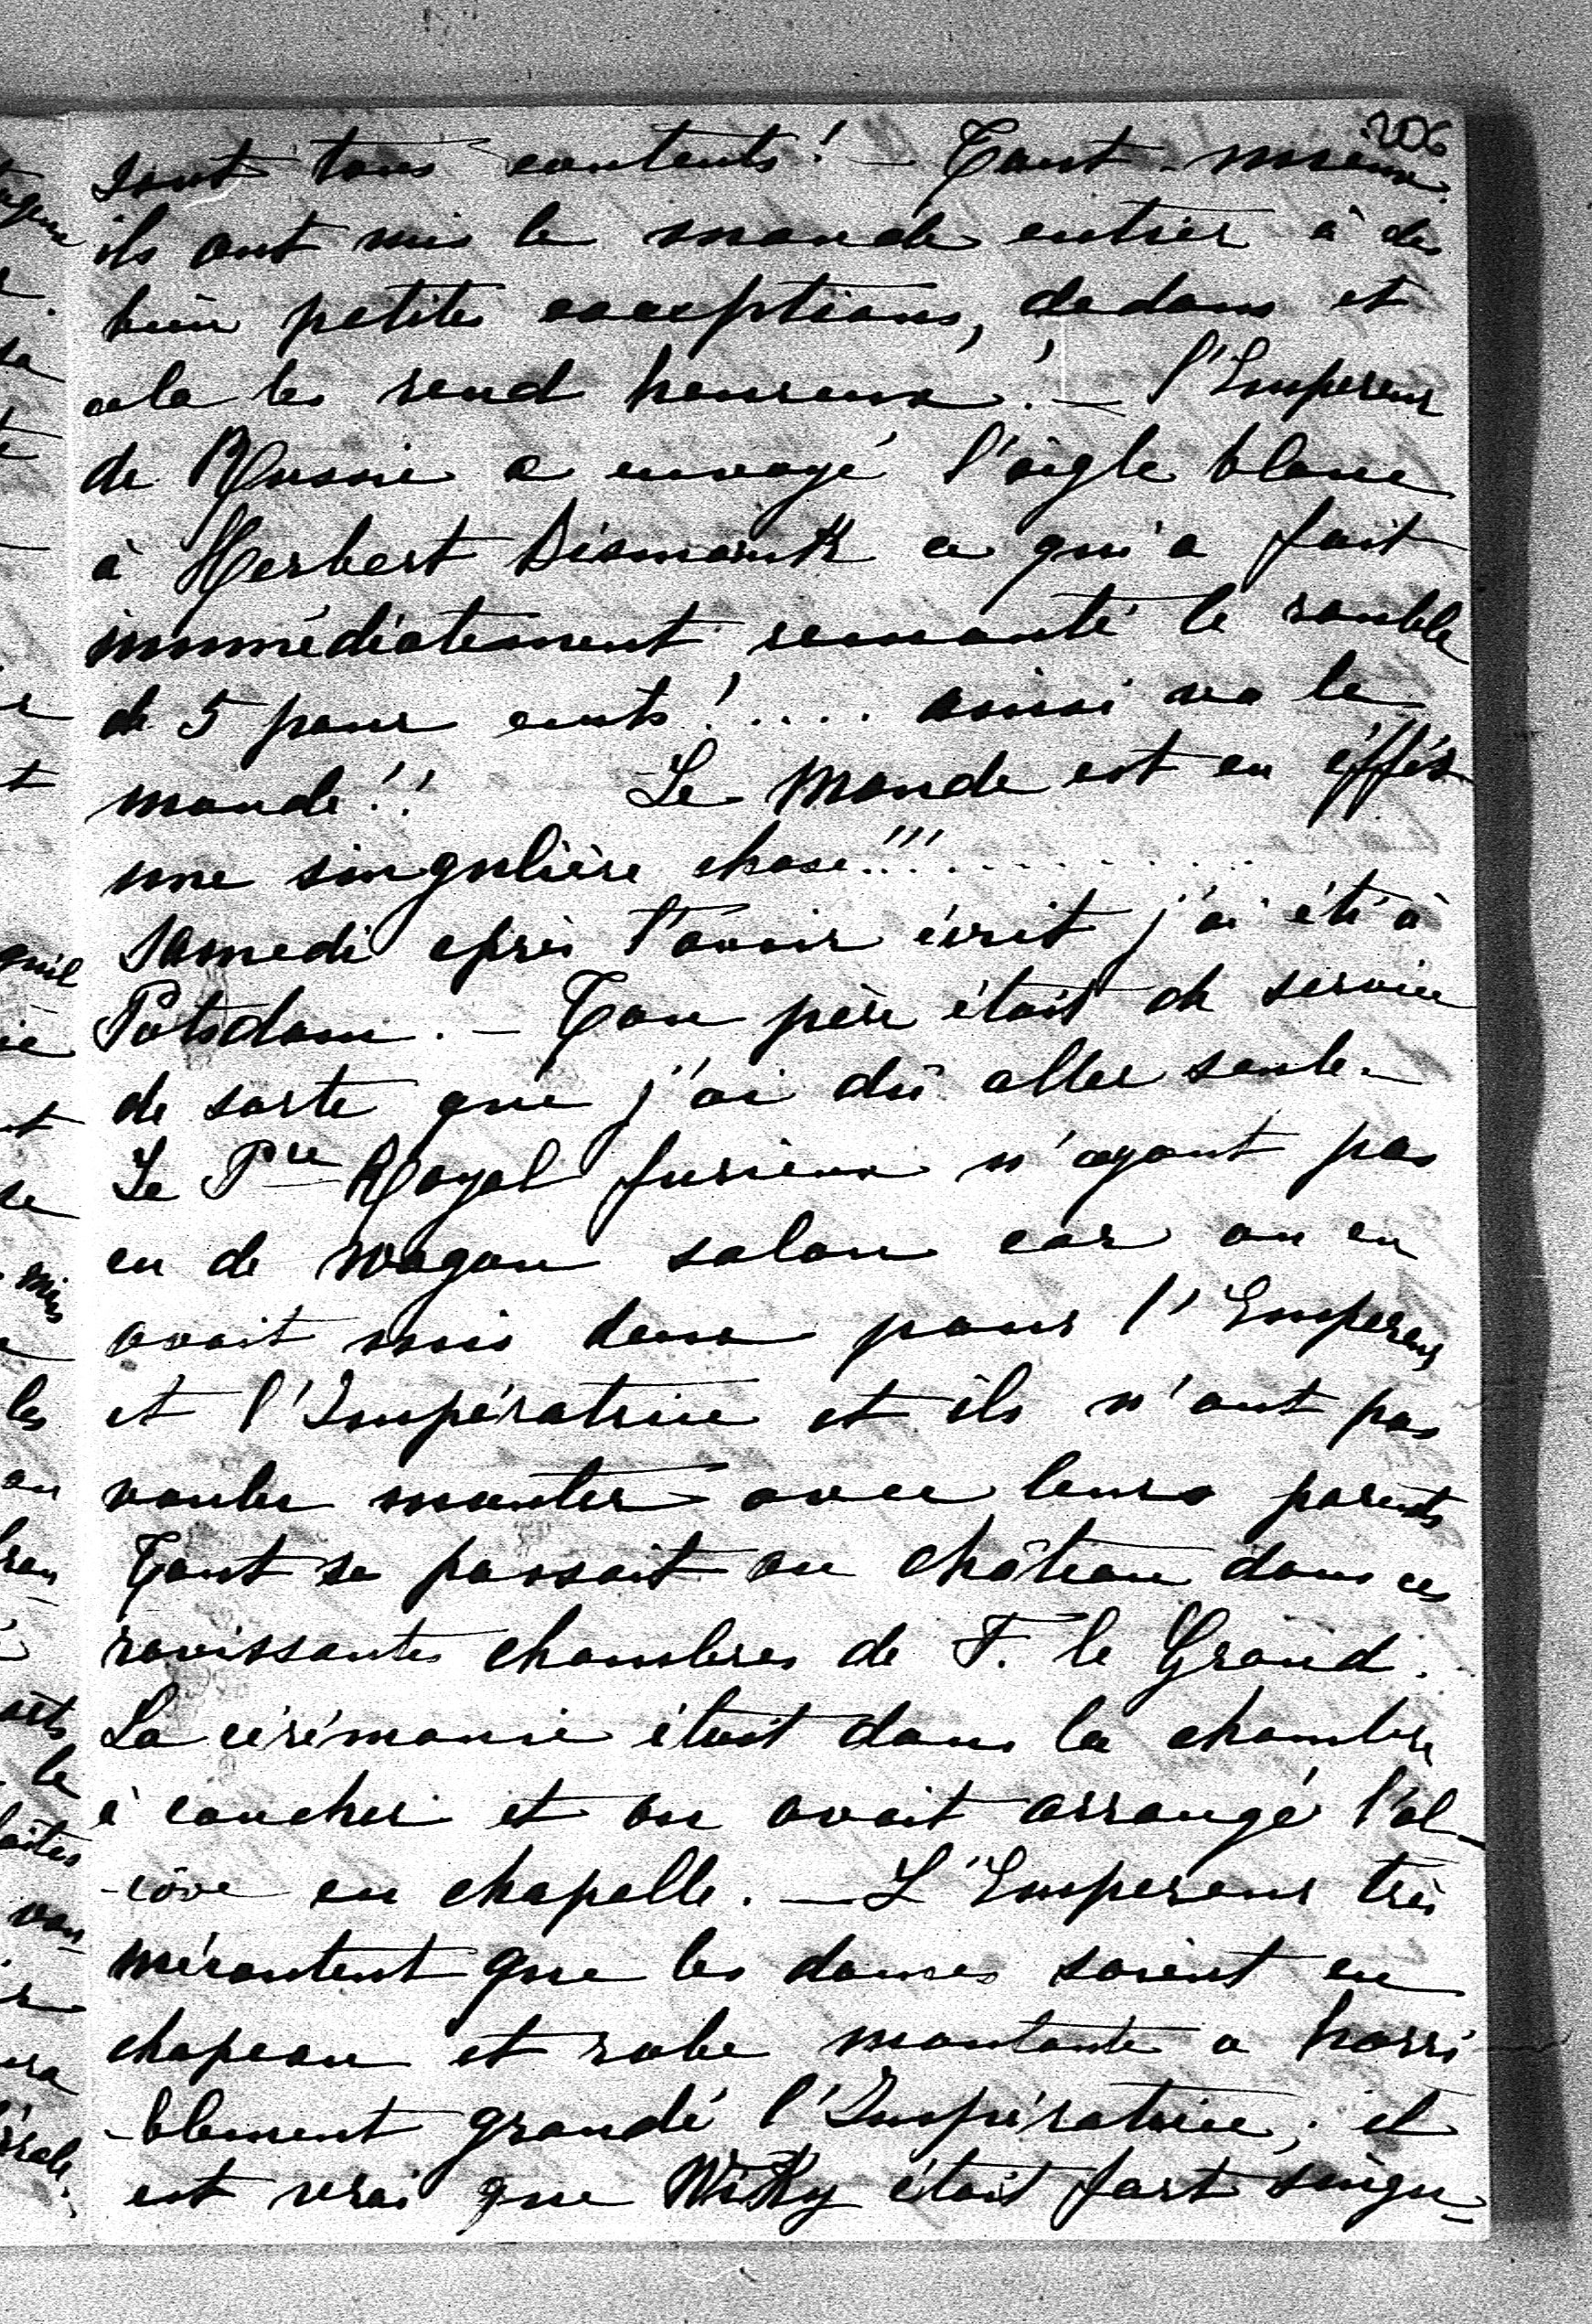 206
sont tous contents! — Tant-mieux.
ils ont mis le monde entier à de
bien petites exceptions, dedans et
cela les rend heureux! — l'Empereur
de Russie a envoyé l'aigle blanc
à Herbert Bismark ce qui a fait
immédiatement remonté le rouble
de 5 pour cents!.... ainsi va le
monde!! Le Monde est en éffét
une singulière chose!!!..........
Samedi après t'avoir écrit j'ai été à
Potsdam. — Ton père était de service
de sorte que j'ai dû aller seule. —
Le Pce Royal furieux n'ayant pas
eu de wagon salon car on en
avait mis deux pour l'Empereur
et l'Impératrice et ils n'ont pas
voulu monter avec leurs parents
Tout se passait au château dans ces
ravissantes chambres de F. le Grand.
La cérémonie était dans la chambre
à coucher et on avait arrangé l'al-
-côve en chapelle. — L'Empereur très
mécontent que les dames soient en
chapeau et robe montante a horri
-blement grondé l'Impératrice; il
est vrai que Wiky était fort singu-